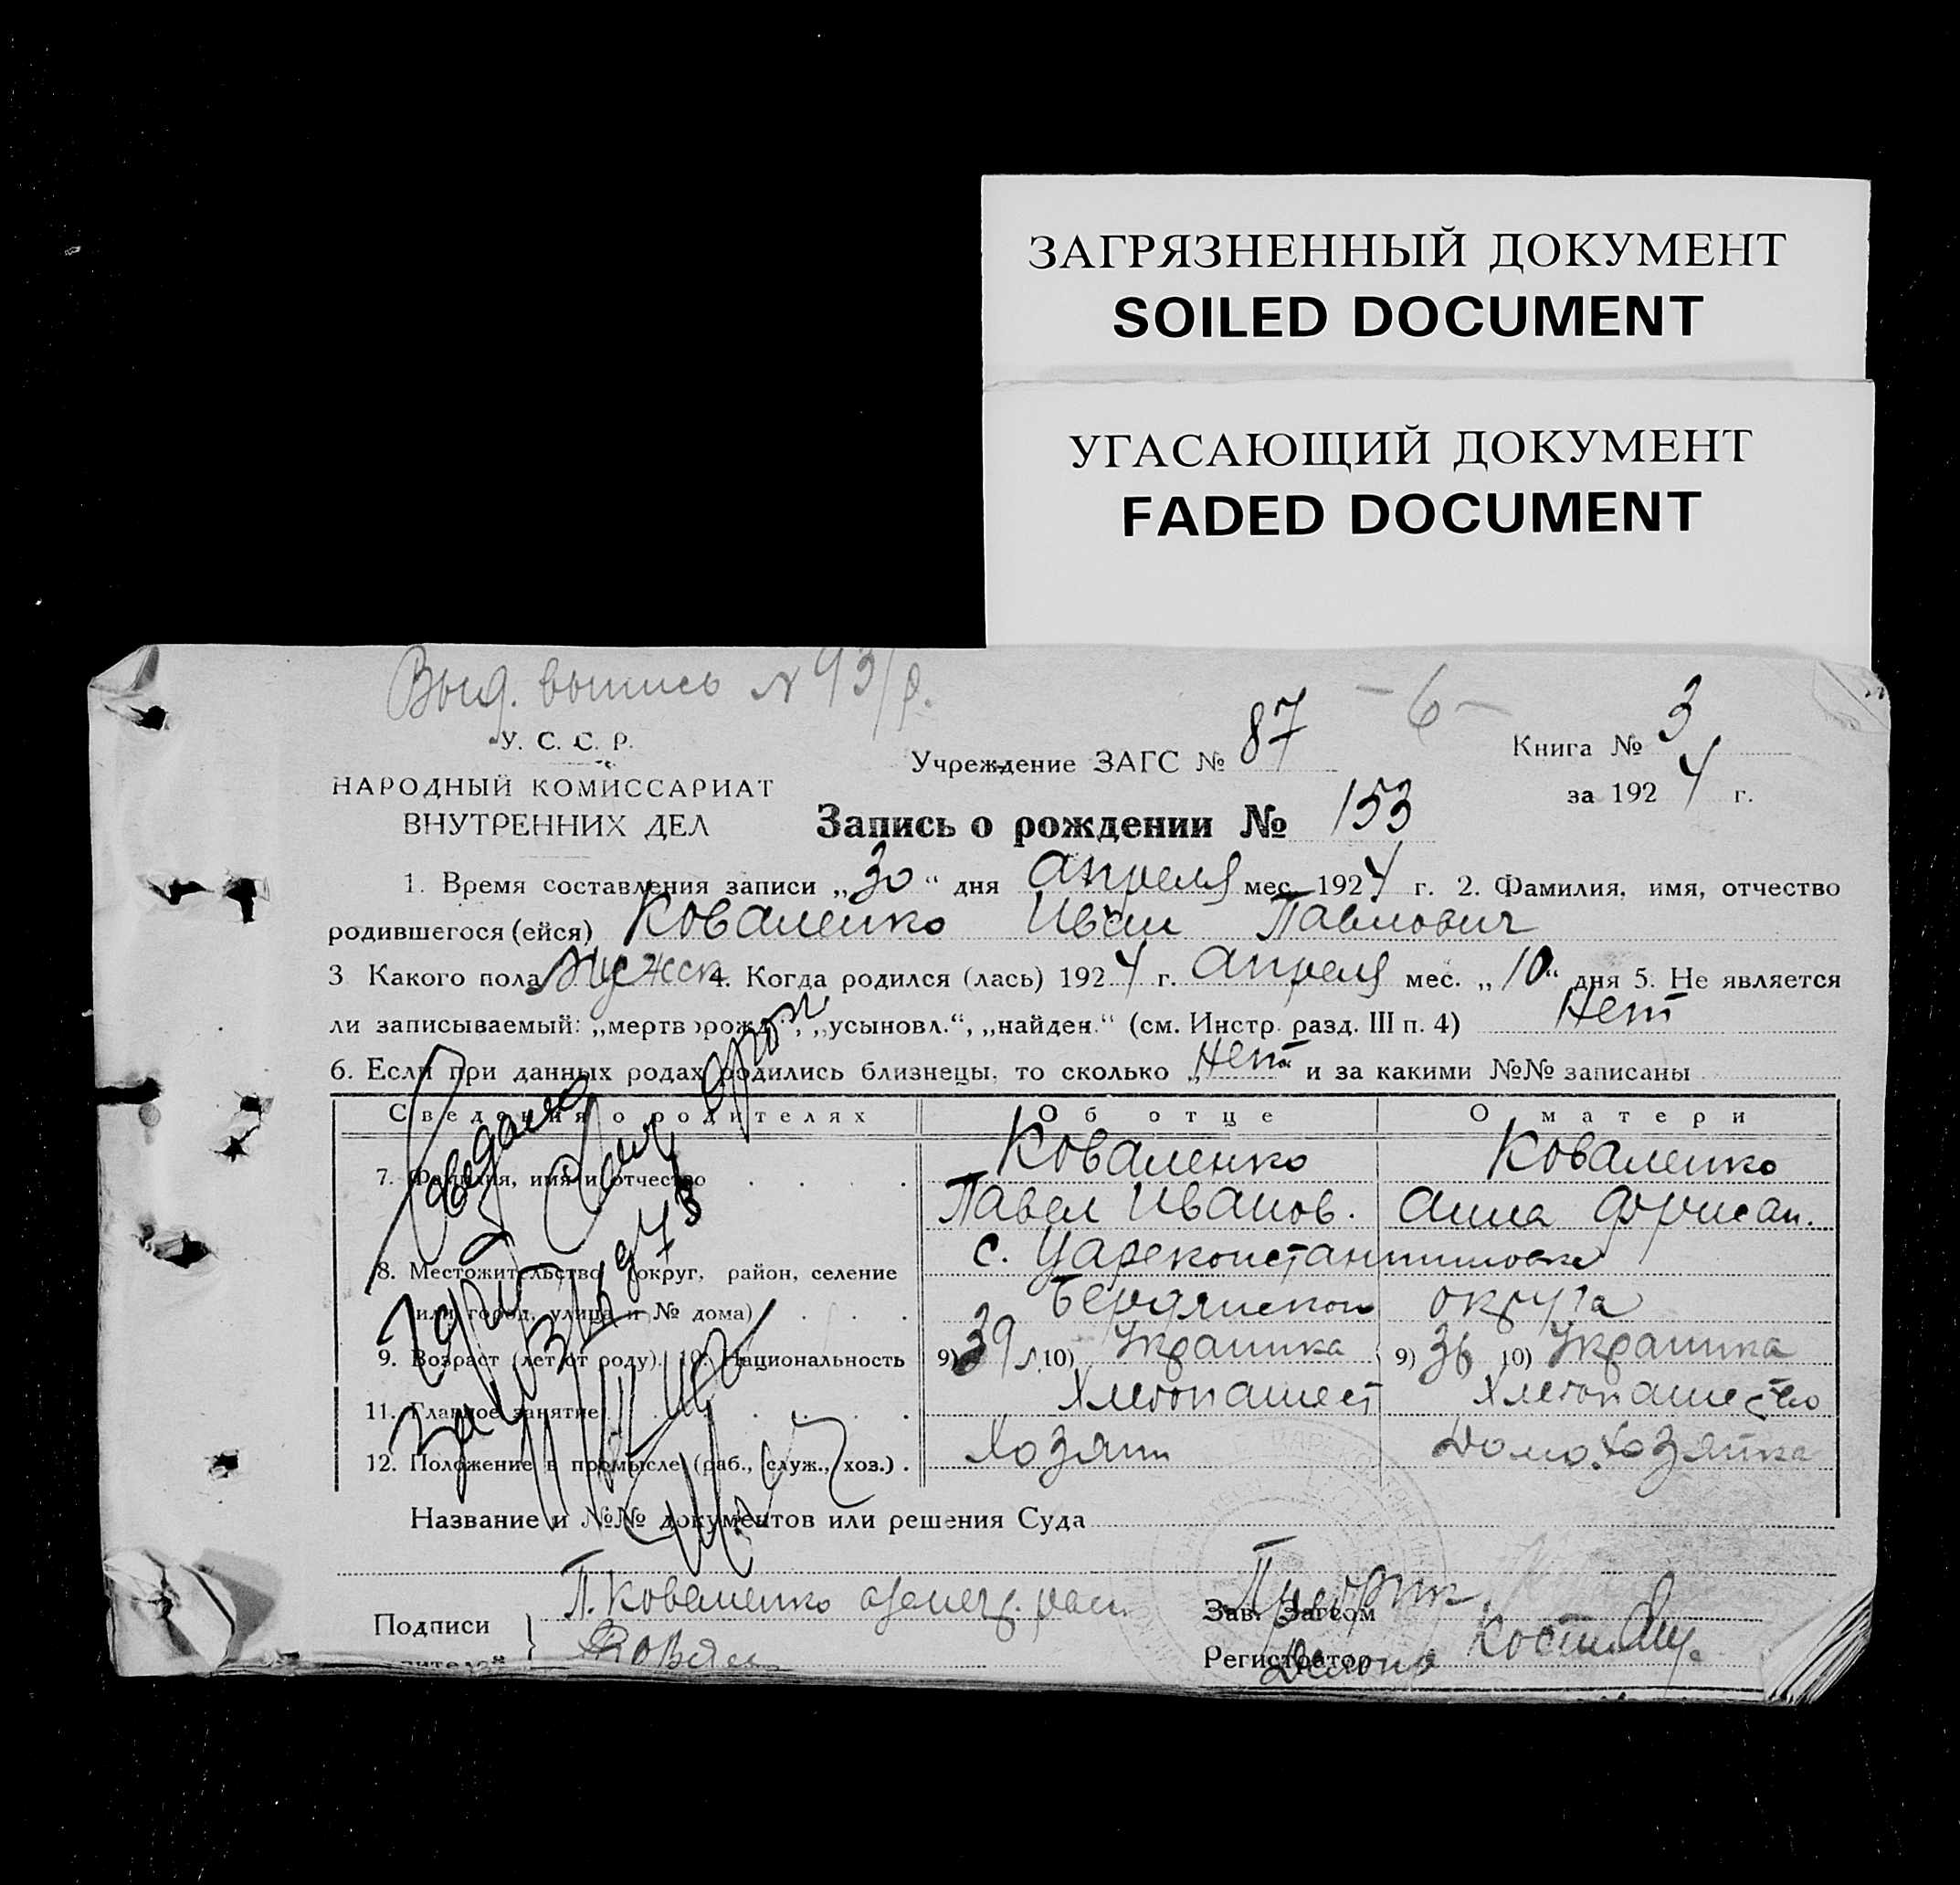 ЗАГРЯЗНЕННЫЙ ДОКУМЕНТ
SOILED DOCUMENT
УГАСАЮЩИЙ ДОКУМЕНТ
FADED DOCUMENT
Выд. выпись N 93/р.
- 6 -
У. С. С. Р.
НАРОДНЫЙ КОМИССАРИАТ
ВНУТРЕННИХ ДЕЛ
Учреждение ЗАГС № 87
Книга № 3
за 1924 г.
Запись о рождении № 153
1. Время составления записи „30“ дня Апреля мес. 1924 г. 2. Фамилия, имя, отчество
родившегося (ейся) Коваленко Иван Павлович
3 Какого пола Мужск 4. Когда родился (лась) 1924 г. Апреля мес. „10“ дня 5. Не является
ли записываемый: „мертворожд.“, „усыновл.“, „найден.“ (см. Инстр. разд. III п. 4) Нет
6. Если при данных родах родились близнецы, то сколько „Нет и за какими №№ записаны
Сведения о родителях Об отце О матери
7. Фамилия, имя и отчество Коваленко Коваленко
Павел Иванов. Анна
с. Цареконстантиновка
8. Местожительство (округ, район, селение
или город, улица и № дома) Бердянском округа
9. Возраст (лет от роду). 10. Национальность 9) 39 л. 10) Украинка 9) 36 10) Украинка
11. Главное занятие Хлебопашест Хлебопашество
12. Положение в промысле (раб., служ., хоз.) Хозяин Домохозяйка
Название и №№ документов или решения Суда
Подписи П. Коваленко
Зав. Загсом
Регистратор